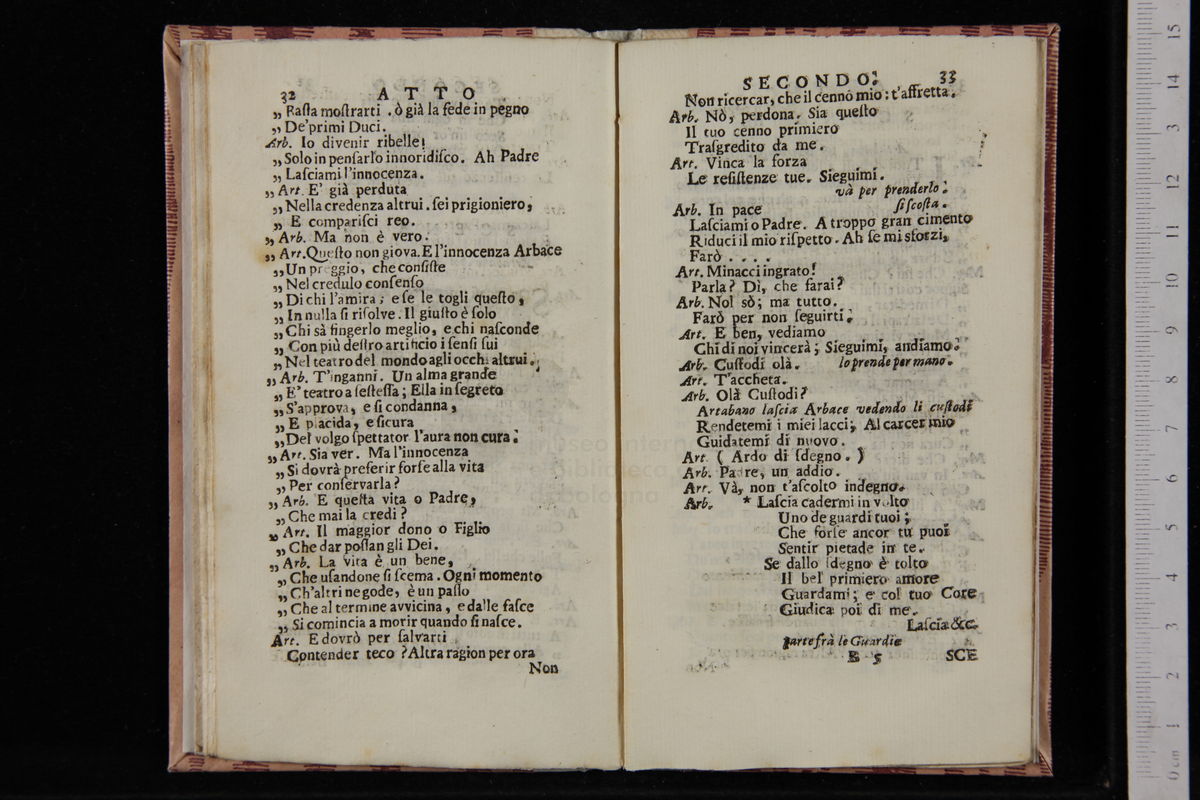 32 ATTO
„ Raſta moſtrarti . ò già la fede in pegno
„ De'primi Duci.
Arb. Io divenir ribelle!
„ Solo in penſarlo innoridiſco. Ah Padre
„ Laſciami l'innocenza.
„ Art. E' già perduta
„ Nella credenza altrui. ſei prigioniero,
„ E compariſci reo.
„ Arb. Ma non è vero.
„ Art. Queſto non giova. E l'innocenza Arbace
„ Un preggio, che conſiſte
„ Nel credulo conſenſo
„ Di chi l'amira; e ſe le togli queſto,
„ In nulla ſi riſolve. Il giuſto è ſolo
„ Chi sà fingerlo meglio, e chi naſconde
„ Con più deſtro artificio i ſenſi ſui
„ Nel teatro del mondo agli occhi altrui.
„ Arb. T'inganni. Un alma grande
„ E' teatro a ſeſteſſa; Ella in ſegreto
„ S'approva, e ſi condanna,
„ E placida, e ſicura
„ Del volgo ſpettator l'aura non cura.
„ Art. Sia ver. Ma l'innocenza
„ Si dovrà preferir forſe alla vita
„ Per conſervarla?
„ Arb. E queſta vita o Padre,
„ Che mai la credi?
„ Art. Il maggior dono o Figlio
„ Che dar poſſan gli Dei.
„ Arb. La vita è un bene,
„ Che uſandone ſi ſcema. Ogni momento
„ Ch'altri ne gode, è un paſſo
„ Che al termine avvicina, e dalle faſce
„ Si comincia a morir quando ſi naſce.
Art. E dovrò per ſalvarti
Contender teco? Altra ragion per ora
Non
SECONDO. 33
Non ricercar, che il cenno mio: t'affretta.
Arb. Nò, perdona. Sia queſto
Il tuo cenno primiero
Traſgredito da me.
Art. Vinca la forza
Le reſiſtenze tue. Sieguimi.
và per prenderlo.
Arb. In pace ſi ſcoſta.
Laſciami o Padre. A troppo gran cimento
Riduci il mio riſpetto. Ah ſe mi sforzi,
Farò . . . .
Art. Minacci ingrato!
Parla? Dì, che farai?
Arb. Nol sò; ma tutto.
Farò per non ſeguirti.
Art. E ben, vediamo
Chi di noi vincerà; Sieguimi, andiamo.
Arb. Cuſtodi olà. lo prende per mano.
Art. T'accheta.
Arb. Olà Cuſtodi?
Artabano laſcia Arbace vedendo li cuſtodi
Rendetemi i miei lacci; Al carcer mio
Guidatemi di nuovo.
Art. ( Ardo di ſdegno. )
Arb. Padre, un addio.
Art. Và, non t'aſcolto indegno.
Arb. * Laſcia cadermi in volto
Uno de guardi tuoi;
Che forſe ancor tu puoi
Sentir pietade in te.
Se dallo ſdegno è tolto
Il bel primiero amore
Guardami; e col tuo Core
Giudica poi di me.
Laſcia &c.
parte frà le Guardie
B 5 SCE